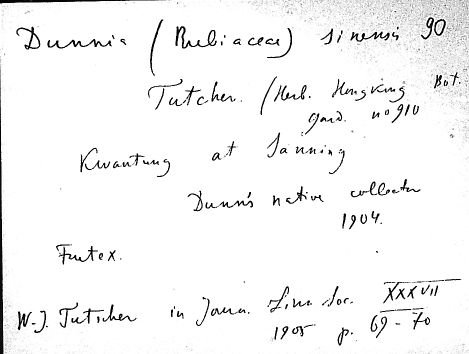 Dunnia (Rubiaceae) sinensis 90
Tutcher. (Herb. Hongkong Bot.
Gard. no 910
Kwantung at Sanning
Dunn's native collector
1904.
Frutex.
W. J. Tutcher in Journ. Linn Soc. XXXVII
1905 p. 69-70